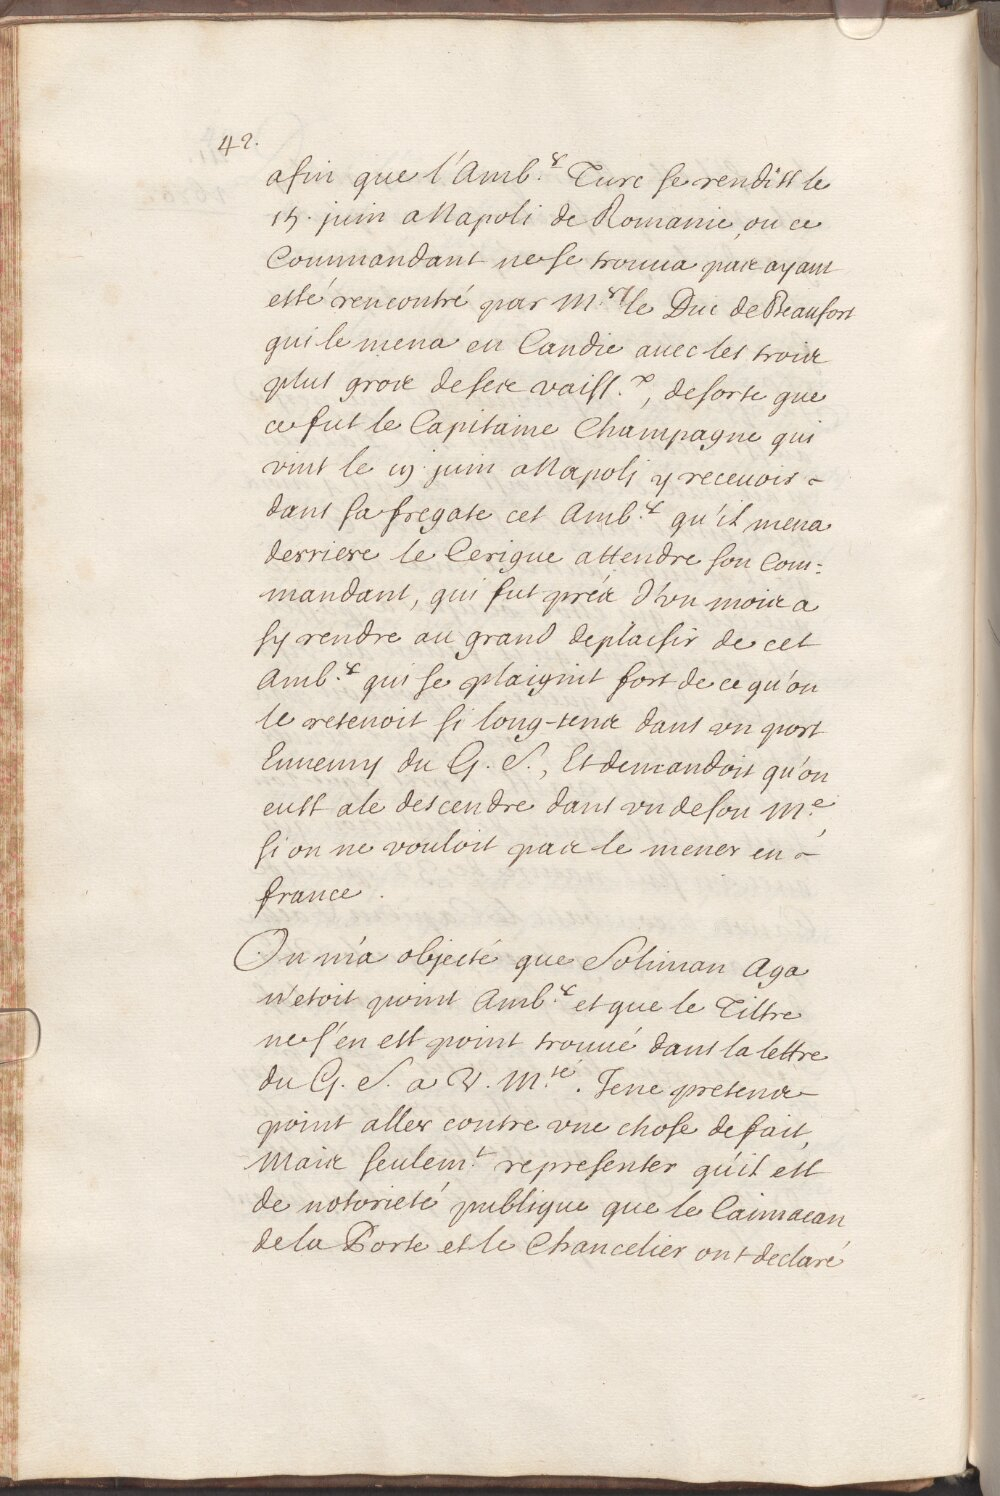 42.
afin que l'Amb.r Turc se rendist le
15. juin a Napoli de Romanie, ou ce
Commandant ne se trouua pas ayant
esté rencontré par M.r le Duc de Beaufort
qui le mena en Candie auec les trois
plus gros de ses vaiss.x, de sorte que
ce fut le Capitaine Champagne qui
vint le 19. juin a Napoli y receuoir
dans sa fregate cet Amb.r qu'il mena
derriere le Cerigue attendre son Com=
mandant, qui fut prés d'vn mois a
s'y rendre au grand deplaisir de cet
Amb.r qui se plaignit fort de ce qu'on
le retenoit si long-tems dans vn port
Ennemy du G. S., Et demandoit qu'on
eust a le descendre dans vn de son M.e,
si on ne vouloit pas le mener en
france.
On m'a objecté que Soliman Aga
n'etoit point Amb.r et que le Tiltre
ne s'en est point trouué dans la lettre
du G. S. a V. M.té. Je ne pretens
point aller contre vne chose de fait,
Mais seulem.t representer qu'il est
de notorieté publique que le Caimacan
de la Porte et le Chancelier ont declaré